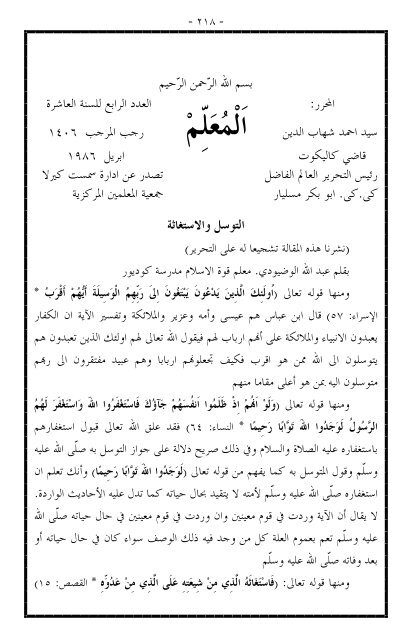 - ٢١٨ -
بسم الله الرّحمن الرّحيم
المحرر:
سيد احمد شهاب الدين
قاضي كاليكوت
رئيس التحرير العالم الفاضل
كى.كى. ابو بكر مسليار
اَلْمُعَلِّمْ
العدد الرابع للسنة العاشرة
رجب المرجب ١٤٠٦
ابريل ١٩٨٦
تصدر عن ادارة سمست كيرلا
جمعية المعلمين المركزية
التوسل والاستغاثة
(نشرنا هذه المقالة تشجيعا له على التحرير)
بقلم عبد الله الوضيودي. معلم قوة الاسلام مدرسة كوديور
ومنها قوله تعالى (اُولٰئِكَ الَّذينَ يَدْعُونَ يَبْتَغُونَ اِلىٰ رَبِّهِمُ الْوَسيلَةَ اَيُّهُمْ اَقْرَبُ *
الإسراء: ٥٧) قال ابن عباس هم عيسى وأمه وعزير والملائكة وتفسير الآية ان الكفار
يعبدون الانبياء والملائكة على أنهم ارباب لهم فيقول الله تعالى لهم اولئك الذين تعبدون هم
يتوسلون الى الله ممن هو اقرب فكيف تجعلونهم اربابا وهم عبيد مفتقرون الى ربهم
متوسلون اليه بمن هو أعلى مقاما منهم
ومنها قوله تعالى (وَلَوْ اَنَّهُمْ اِذْ ظَلَمُوا اَنفُسَهُمْ جَآؤُكَ فَاسْتَغْفَرُوا اللهَ وَاسْتَغْفَرَ لَهُمُ
الرَّسُولُ لَوَجَدُوا اللهَ تَوَّابًا رَحيمًا * النساء: ٦٤) فقد علق الله تعالى قبول استغفارهم
باستغفاره عليه الصلاة والسلام وفي ذلك صريح دلالة على جواز التوسل به صلّى الله عليه
وسلّم وقول المتوسل به كما يفهم من قوله تعالى (لَوَجَدُوا اللهَ تَوَّابًا رَحيمًا) وأنك تعلم ان
استغفاره صلّى الله عليه وسلّم لأمته لا يتقيد بحال حياته كما تدل عليه الأحاديث الواردة.
لا يقال أن الآية وردت في قوم معينين وان وردت في قوم معينين في حال حياته صلّى الله
عليه وسلّم تعم بعموم العلة كل من وجد فيه ذلك الوصف سواء كان في حال حياته أو
بعد وفاته صلّى الله عليه وسلّم
ومنها قوله تعالى: (فَاسْتَغَاثَهُ الَّذي مِنْ شيعَتِهِ عَلَى الَّذي مِنْ عَدُوِّهِ * القصص: ١٥)